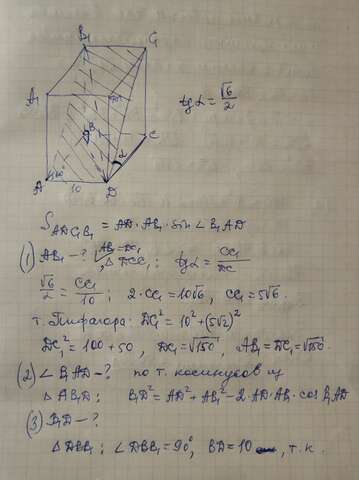 B₁ C₁
A₁ 60°
tg α = √6/2
B C
A 60° α
10 D
S_ADC₁B₁ = AD · AB₁ · sin ∠ B₁AD
① AB₁ - ? AB₁ = DC₁
△ DCC₁: tg α = CC₁/DC
√6/2 = CC₁/10 ; 2·CC₁ = 10√6, CC₁ = 5√6.
т. Пифагора: DC₁² = 10² + (5√2)²
DC₁² = 100 + 50, DC₁ = √150, AB₁ = DC₁ = √150.
② ∠ B₁AD - ? по т. косинусов из
△ AB₁D: B₁D² = AD² + AB₁² - 2·AD·AB₁·cos B₁AD
③ B₁D - ?
△ DBB₁: ∠ DBB₁ = 90°, BD = 10, т.к.